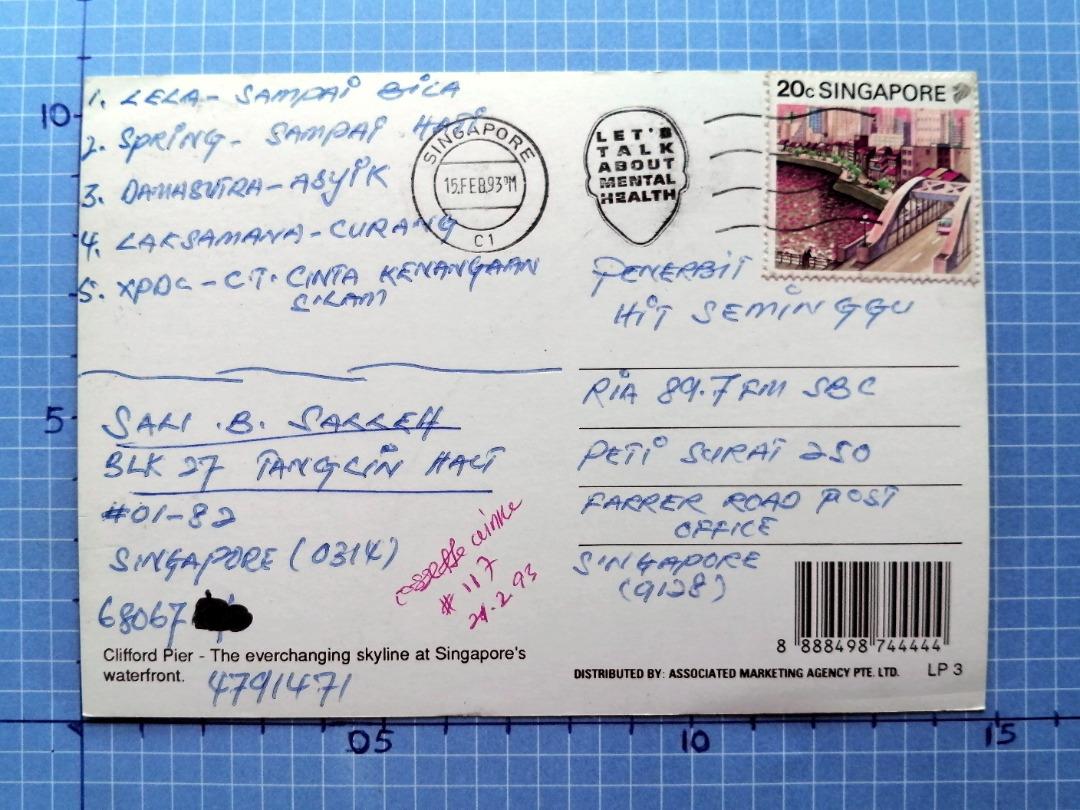 1. LELA - SAMPAI BILA
2. SPRING - SAMPAI HATI
3. DAMASUTRA - ASYIK
4. LAKSAMANA - CURANG
5. XPDC - C.T. CINTA KENANGAAN
SILAM
SALI .B. SALLEH
BLK 27 TANGLIN HALT
#01-82
SINGAPORE (0314)
68067
# 117
24.2.93
Clifford Pier - The everchanging skyline at Singapore's
waterfront.
4791471
SINGAPORE
15.FEB.93 PM
C1
LET'S
TALK
ABOUT
MENTAL
HEALTH
20c SINGAPORE
PENERBIT
HIT SEMINGGU
RIA 89.7 FM SBC
PETI SURAT 250
FARRER ROAD POST
OFFICE
SINGAPORE
(9128)
8 888498 744444
DISTRIBUTED BY: ASSOCIATED MARKETING AGENCY PTE. LTD. LP 3
10
5
05
10
15